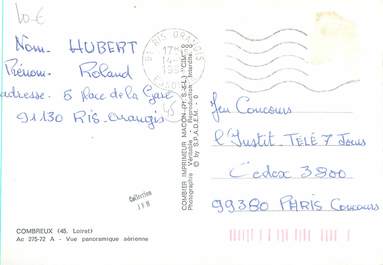 10 €
Nom. HUBERT
Prénom. Roland
adresse. 5 Place de la Gare
91130 Ris. Orangis
91 RIS ORANGIS
Jeu Concours
l'Instit TELE 7 Jours
Cedex 3800
99380 PARIS Concours
COMBIER IMPRIMEUR MACON
Photographie Véritable - Reproduction Interdite
© by S.P.A.D.E.M.
Collection
COMBREUX (45. Loiret)
Ac 275-72 A - Vue panoramique aérienne